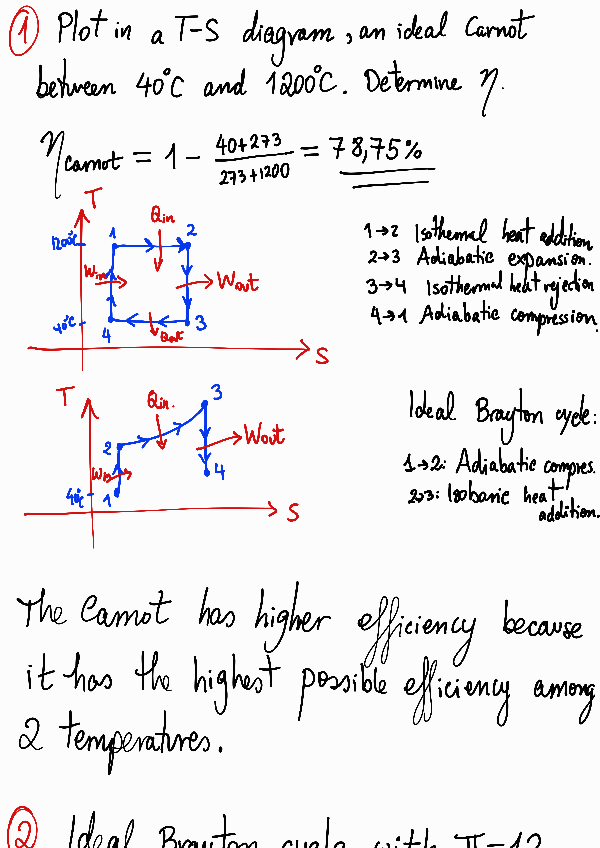 ① Plot in a T-S diagram, an ideal Carnot
between 40°C and 1200°C. Determine η.
ηcarnot = 1 - (40+273)/(273+1200) = 78,75%
T
1200°C
1
Qin
2
Win
Wout
40°C
4
Qout
3
S
1→2 Isothermal heat addition
2→3 Adiabatic expansion.
3→4 Isothermal heat rejection
4→1 Adiabatic compression.
T
Qin.
3
2
Wout
Win
4
40°C
1
S
Ideal Brayton cycle:
1→2: Adiabatic compres.
2→3: Isobaric heat
addition.
The Carnot has higher efficiency because
it has the highest possible efficiency among
2 temperatures.
② Ideal Brayton cycle with π=12